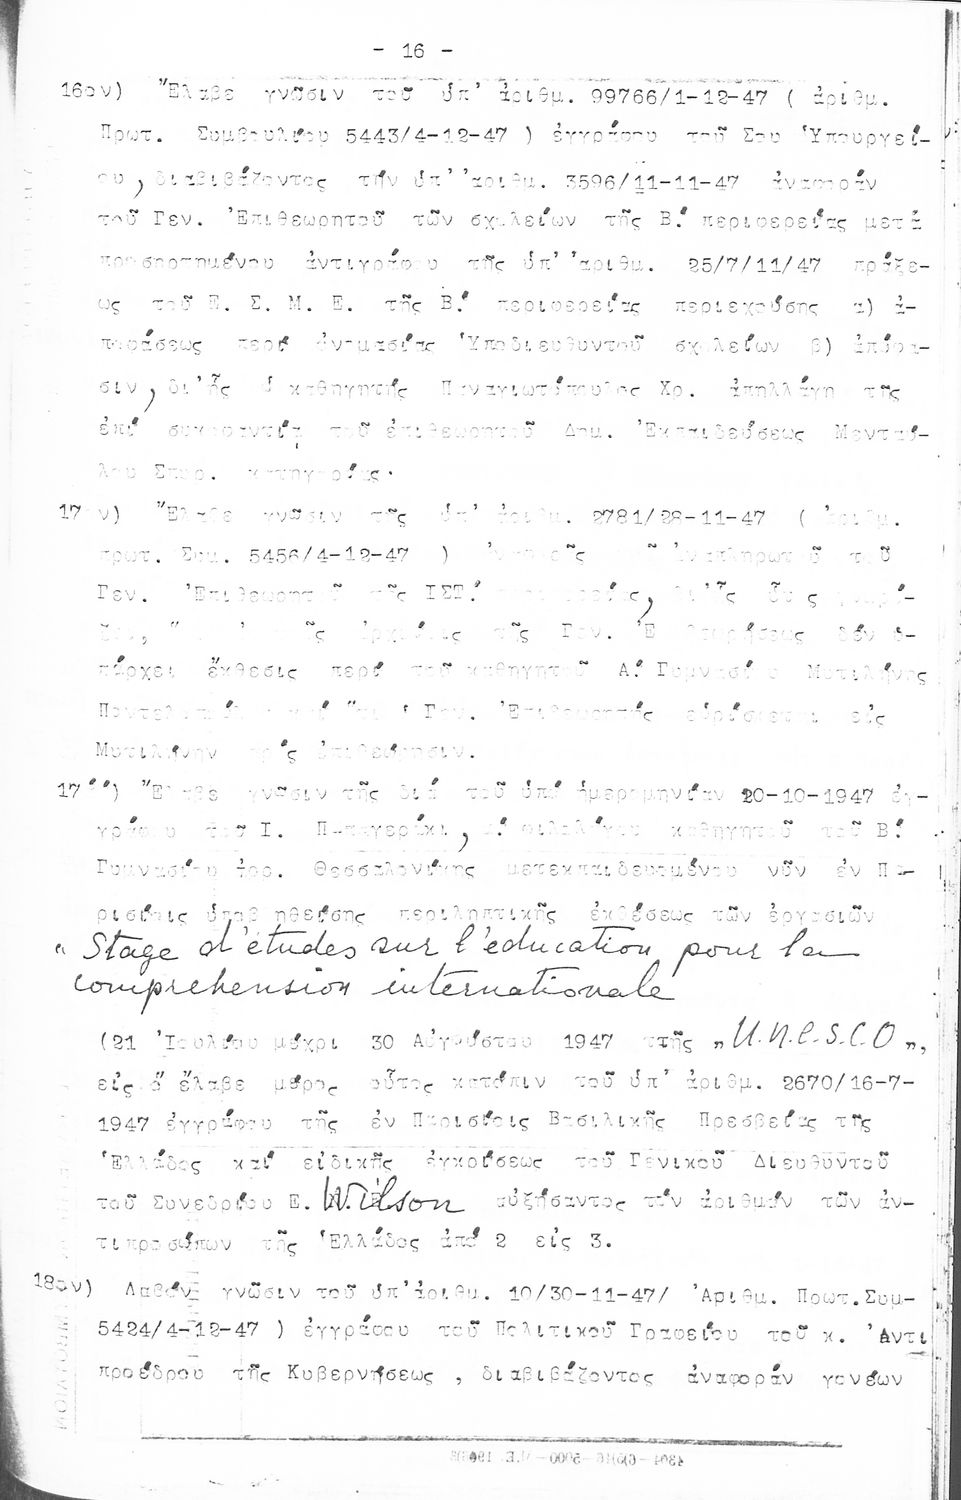 - 16 -
16ον) Ἔλαβε γνῶσιν τοῦ ὑπ' ἀριθμ. 99766/1-12-47 ( ἀριθμ.
Πρωτ. Συμβουλίου 5443/4-12-47 ) ἐγγράφου τοῦ Σου Ὑπουργεί-
ου, διαβιβάζοντος τήν ὑπ' ἀριθμ. 3596/11-11-47 ἀναφοράν
τοῦ Γεν. Ἐπιθεωρητοῦ τῶν σχολείων τῆς Β΄ περιφερείας μετά
προσηρτημένου ἀντιγράφου τῆς ὑπ' ἀριθμ. 25/7/11/47 πράξε-
ως τοῦ Ε. Σ. Μ. Ε. τῆς Β΄ περιφερείας περιεχούσης α) ἀ-
ποφάσεως περί ὀνομασίας Ὑποδιευθυντοῦ σχολείων β) ἀπόφα-
σιν, δι' ἧς ὁ καθηγητής Παναγιωτόπουλος Χρ. ἀπηλλάγη τῆς
ἐπί συκοφαντίᾳ τοῦ ἐπιθεωρητοῦ Δημ. Ἐκπαιδεύσεως Μενταύ-
λου Σπυρ. κατηγορίας.
17ον) Ἔλαβε γνῶσιν τῆς ὑπ' ἀριθμ. 2781/28-11-47 ( ἀριθμ.
πρωτ. Συμ. 5456/4-12-47 ) ἀναφορᾶς τοῦ ἀναπληρωτοῦ τοῦ
Γεν. Ἐπιθεωρητοῦ τῆς ΙΣΤ΄ περιφερείας, δι' ἧς οὗτος γνωρί-
ζει, ἀρχείοις τῆς Γεν. Ἐπιθεωρήσεως δέν ὑ-
πάρχει ἔκθεσις περί τοῦ καθηγητοῦ Α΄ Γυμνασίου Μυτιλήνης
καί ὅτι ὁ Γεν. Ἐπιθεωρητής εὑρίσκεται εἰς
Μυτιλήνην πρός ἐπιθεώρησιν.
17 ) Ἔλαβε γνῶσιν τῆς διά τοῦ ὑπό ἡμερομηνίαν 20-10-1947 ἐγ-
γράφου τοῦ Ι. Παπαγεράκι, φιλολόγου καθηγητοῦ τοῦ Β΄
Γυμνασίου Θεσσαλονίκης μετεκπαιδευομένου νῦν ἐν Πα-
ρισίοις ὑποβληθείσης περιληπτικῆς ἐκθέσεως τῶν ἐργασιῶν
" Stage d'études sur l'education pour la
comprehension internationale
(21 Ἰουλίου μέχρι 30 Αὐγούστου 1947 ττῆς „U.N.E.S.C.O„,
εἰς ὅ ἔλαβε μέρος οὗτος κατόπιν τοῦ ὑπ' ἀριθμ. 2670/16-7-
1947 ἐγγράφου τῆς ἐν Παρισίοις Βασιλικῆς Πρεσβείας τῆς
Ἑλλάδος καί εἰδικῆς ἐγκρίσεως τοῦ Γενικοῦ Διευθυντοῦ
τοῦ Συνεδρίου Ε. Wilson αὐξήσαντος τόν ἀριθμόν τῶν ἀν-
τιπροσώπων τῆς Ἑλλάδος ἀπό 2 εἰς 3.
18ον) Λαβόν γνῶσιν τοῦ ὑπ' ἀριθμ. 10/30-11-47/ Ἀριθμ. Πρωτ.Συμ-
5424/4-12-47 ) ἐγγράφου τοῦ Πολιτικοῦ Γραφείου τοῦ κ. Ἀντι
προέδρου τῆς Κυβερνήσεως , διαβιβάζοντος ἀναφοράν γονέων